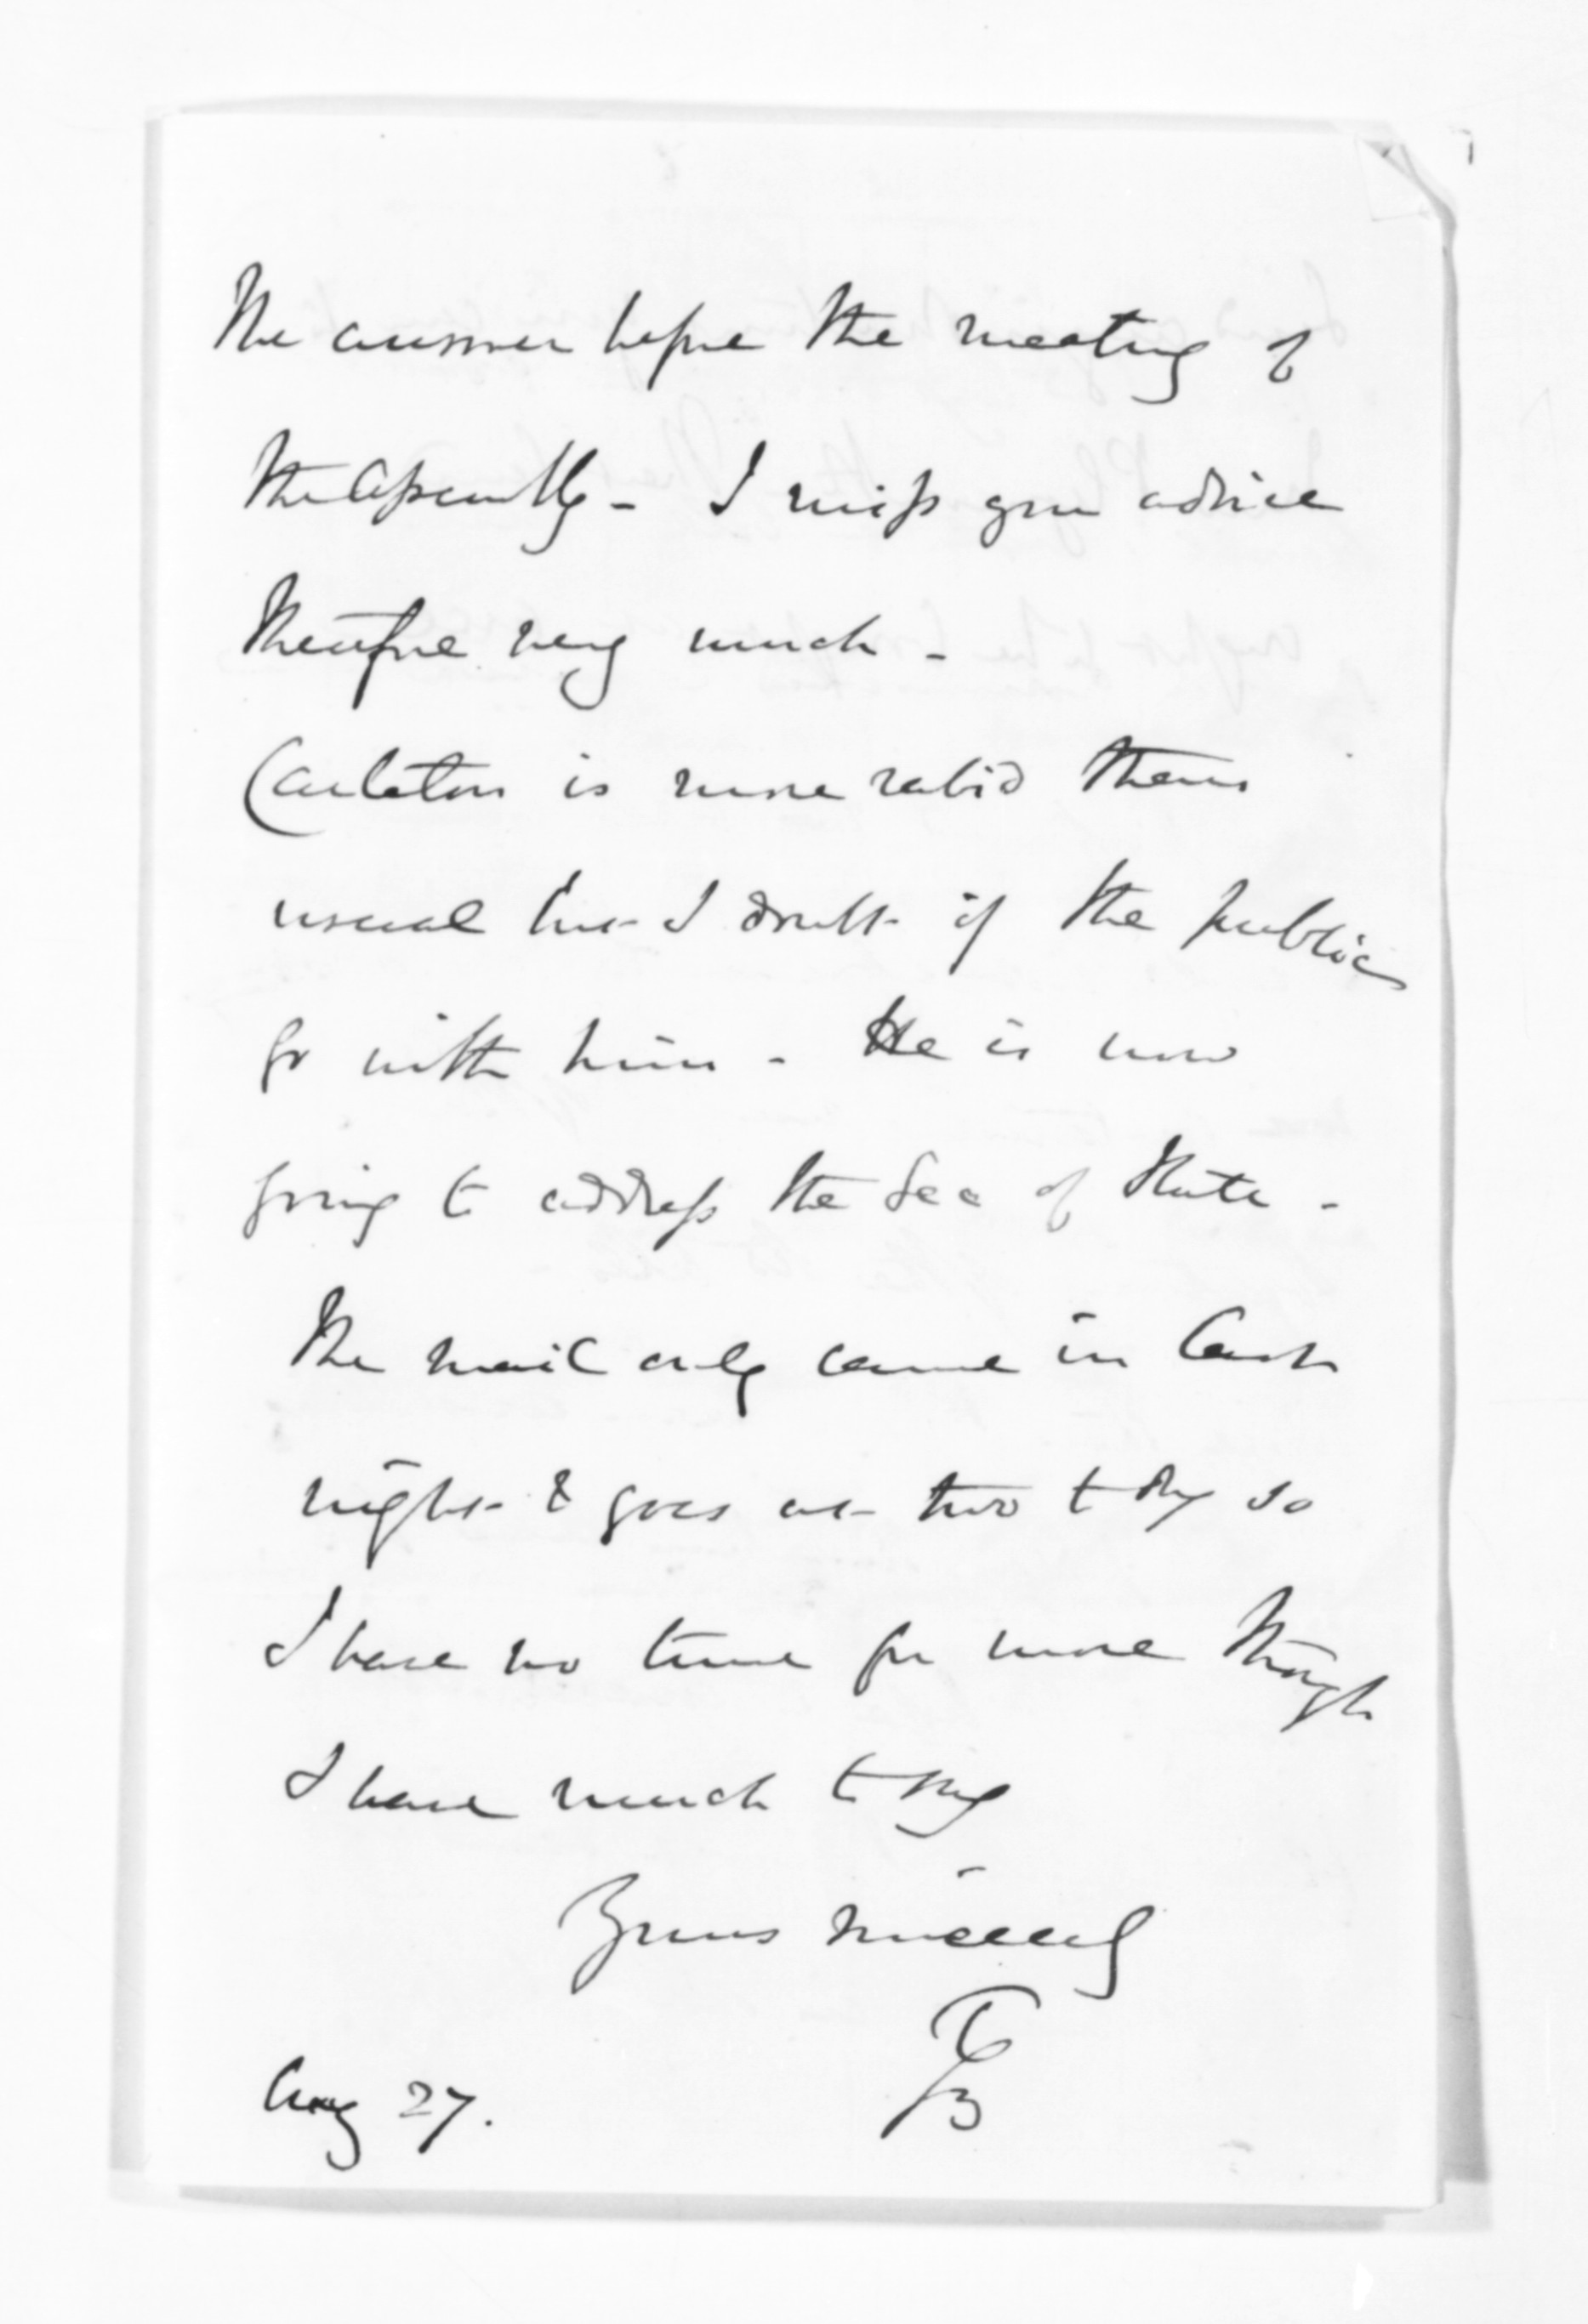 The answer before the meeting of
the Assembly - I miss your advice
therefore very much -
Carleton is more rabid than
usual but I doubt if the public
go with him - He is now
going to address the Sec of State -
The mail only came in last
night & goes at two to day so
I have no time for more though
I have much to say
Yours sincerely
TGB
Aug 27.